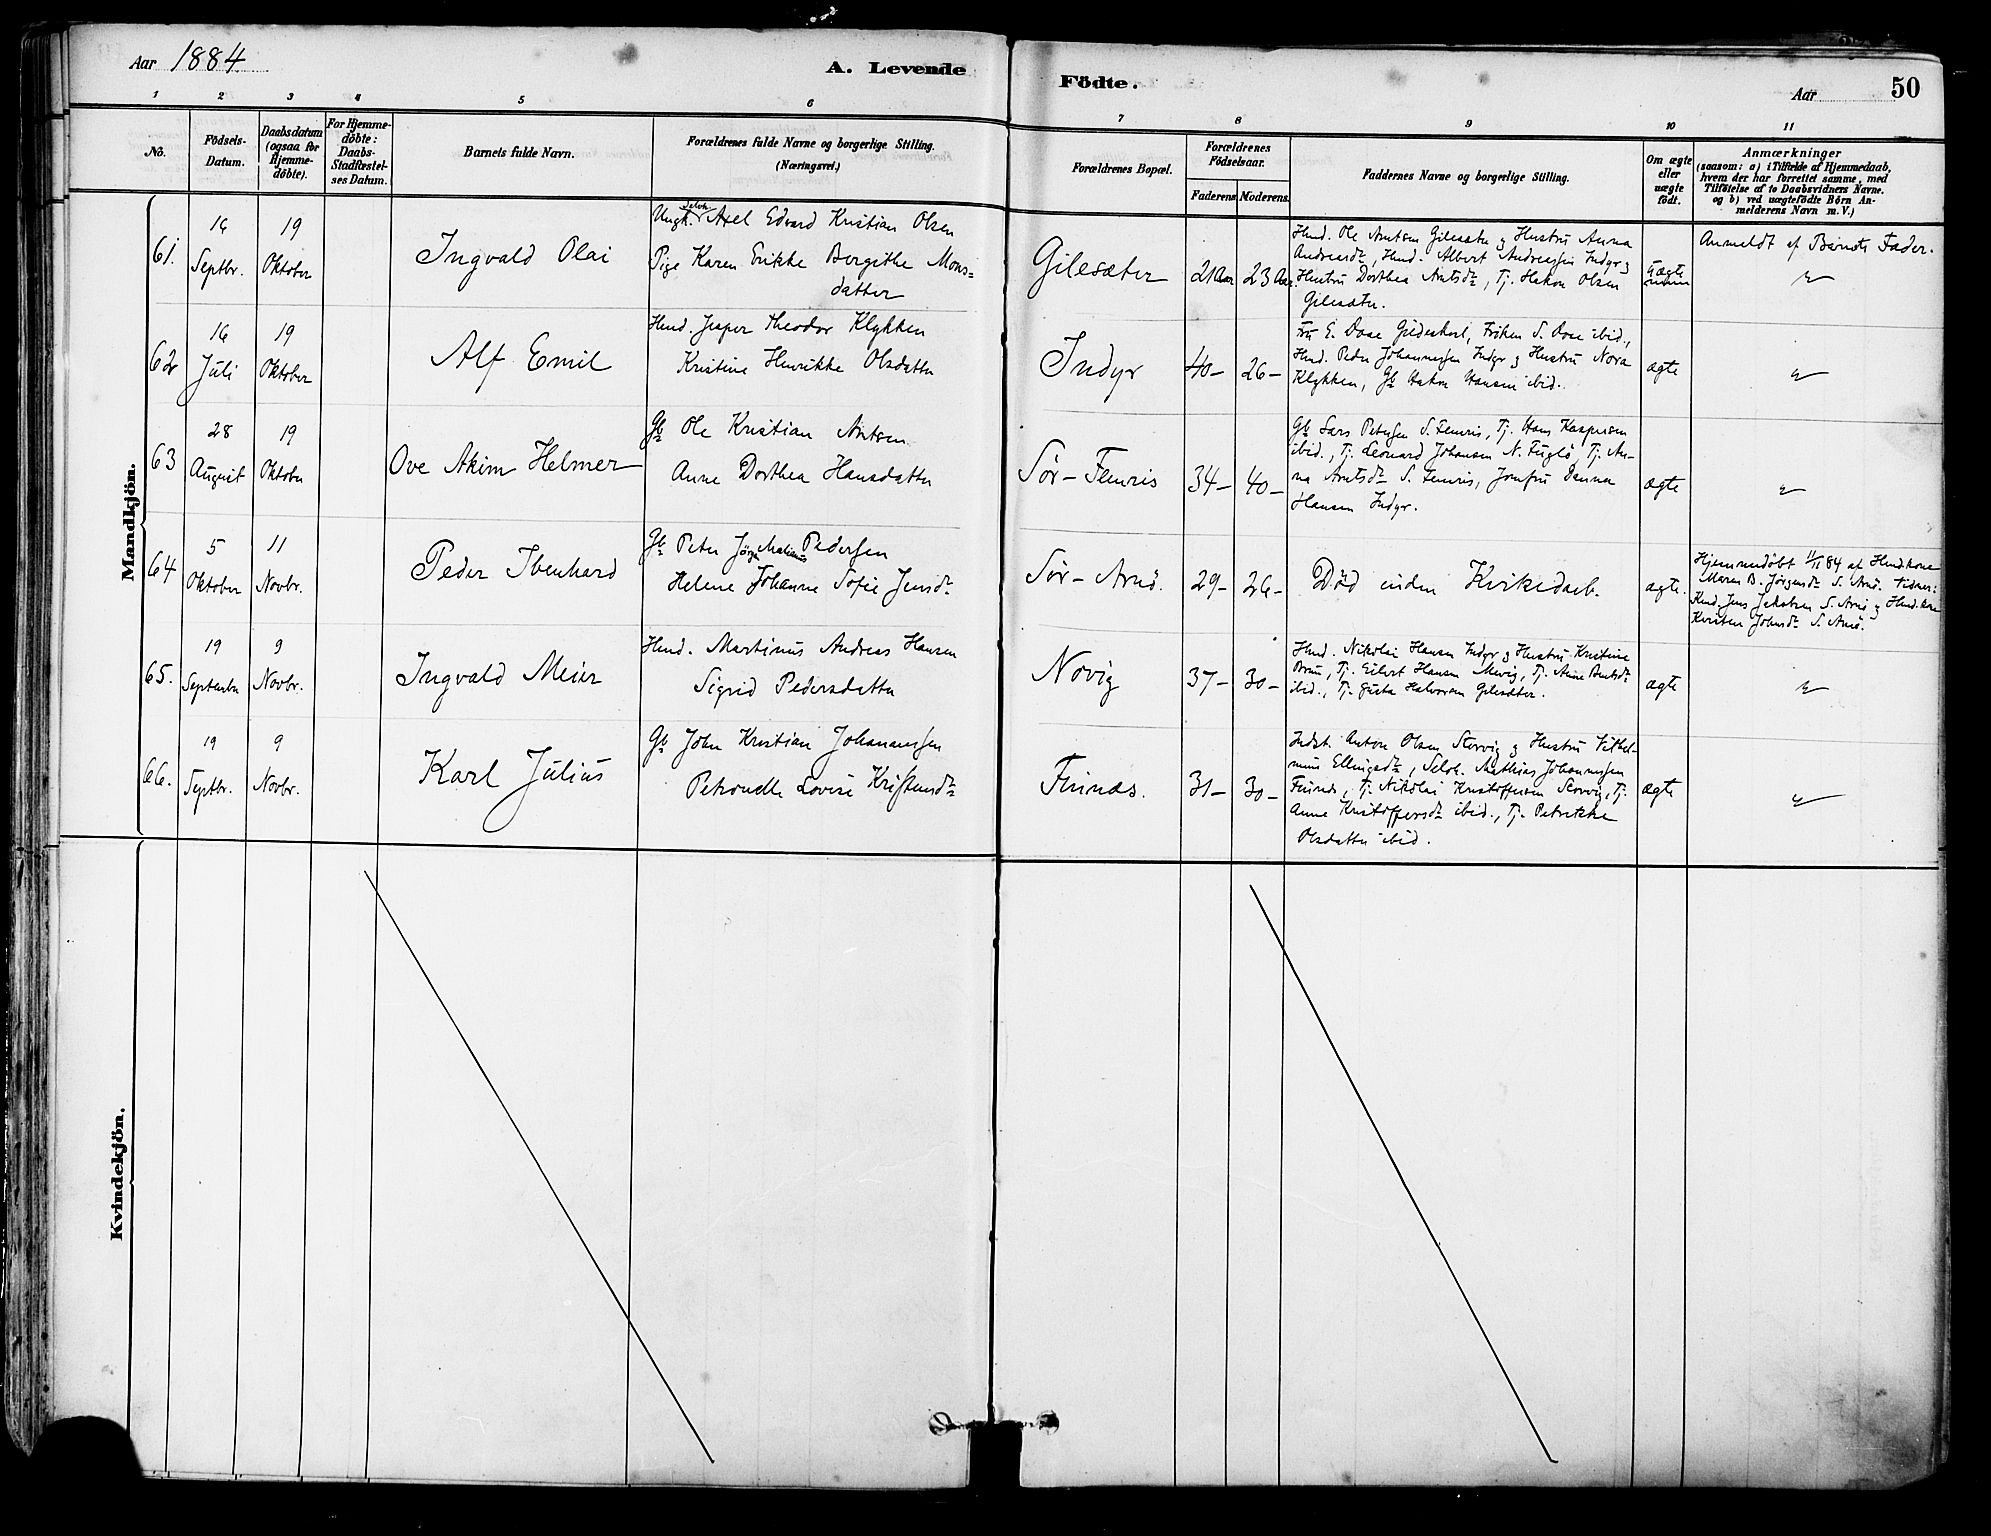 Aar 1884
A. Levende
Födte.
Aar
50
1 2 3 4 5 6 7 8 9 10 11
No.
Födsels-
Datum.
Daabsdatum
(ogsaa for
Hjemme-
döbte).
For Hjemme-
döbte:
Daabs-
Stadfæstel-
ses Datum.
Barnets fulde Navn.
Forældrenes fulde Navne og borgerlige Stilling.
(Næringsvei.)
Forældrenes Bopæl.
Forældrenes
Födselsaar.
Faderens
Moderens
Faddernes Navne og borgerlige Stilling.
Om ægte
eller
uægte
født.
Anmærkninger
(saasom: a) i Tilfælde af Hjemmedaab,
hvem der har forrettet samme, med
Tilföielse af to Daabsvidners Navne.
og b) ved uægtefödte Börn An-
melderens Navn m. V.)
Mandkjön.
61.
16
Septbr.
19
Oktober
Ingvald Olai
Ungk. Selvh. Axel Edvard Kristian Olsen
Pige Karen Erikke Bergithe Mons-
datter
Gilesæter
21 Aar
23 Aar
Hmd. Ole Arntsen Gilesæter & Hustru Anna
Andreasdr, Hmd. Albert Andreassen Indyr &
Hustru Dorthea Arntsdr, Tj. Hakon Olsen
Gilesæter.
Uægte
Anmeldt af Barnets Fader.
62
16
Juli
19
Oktober
Alf Emil
Hmd. Jesper Theodor Klykken
Kristine Henrikke Olsdatter
Indyr
40-
26-
Fru E. Dose Gildeskaal, Frøken S. Dose ibid.,
Hmd. Peder Johannessen Indyr & Hustru Nora
Klykken, Gb Hakon Hansen ibid.
ægte
63
28
August
19
Oktober
Ove Akim Helmer
Gb Ole Kristian Arntsen
Anne Dorthea Hansdatter
Sør-Femris
34-
40-
Gb Lars Petersen S. Femris, Tj. Hans Kaspersen
ibid., Tj. Leonard Johansen N. Fuglö, Tj. An-
na Arntsdr S. Femris, Jomfru Danna
Hansen Indyr.
ægte
64
5
Oktober
11
Novbr.
Peder Ibenhard
Gb Peter Jörgen Matinus Pedersen
Helene Johanne Sofie Jensdr
Sør-Arnö.
29-
26-
Död inden Kirkedaab.
ægte.
Hjemmedøbt 11/11 84 af Hmd.kone
Maren B. Jörgensdr S. Arnö. Vidner:
Hmd. Jens Jakobsen S. Arnö & Hmd.kone
Kirsten Johnsdr S. Arnö.
65.
19
September
9
Novbr.
Ingvald Meier
Hmd. Martinus Andreas Hansen
Sigrid Pedersdatter
Novig
37-
30-
Hmd. Nikolai Hansen Indyr & Hustru Kristine
Brun, Tj. Eilert Hansen Mevig, Tj. Anne Bentsdr
ibid., Tj. Gusta Halvorsen Gilesæter.
ægte
66.
19
Septbr.
9
Novbr.
Karl Julius
Gb John Kristian Johannessen
Petronelle Lovise Kristensdr
Finnæs.
31-
30-
Indst. Anton Olsen Storvig & Hustru Vilhel-
mine Ellingsdr, Selvh. Mathias Johannessen
Finnæs, Tj. Nikolai Kristoffersen Storvig, Tj.
Anne Kristoffersdr ibid., Tj. Petrikke
Olsdatter ibid.
ægte
Kvindekjön.